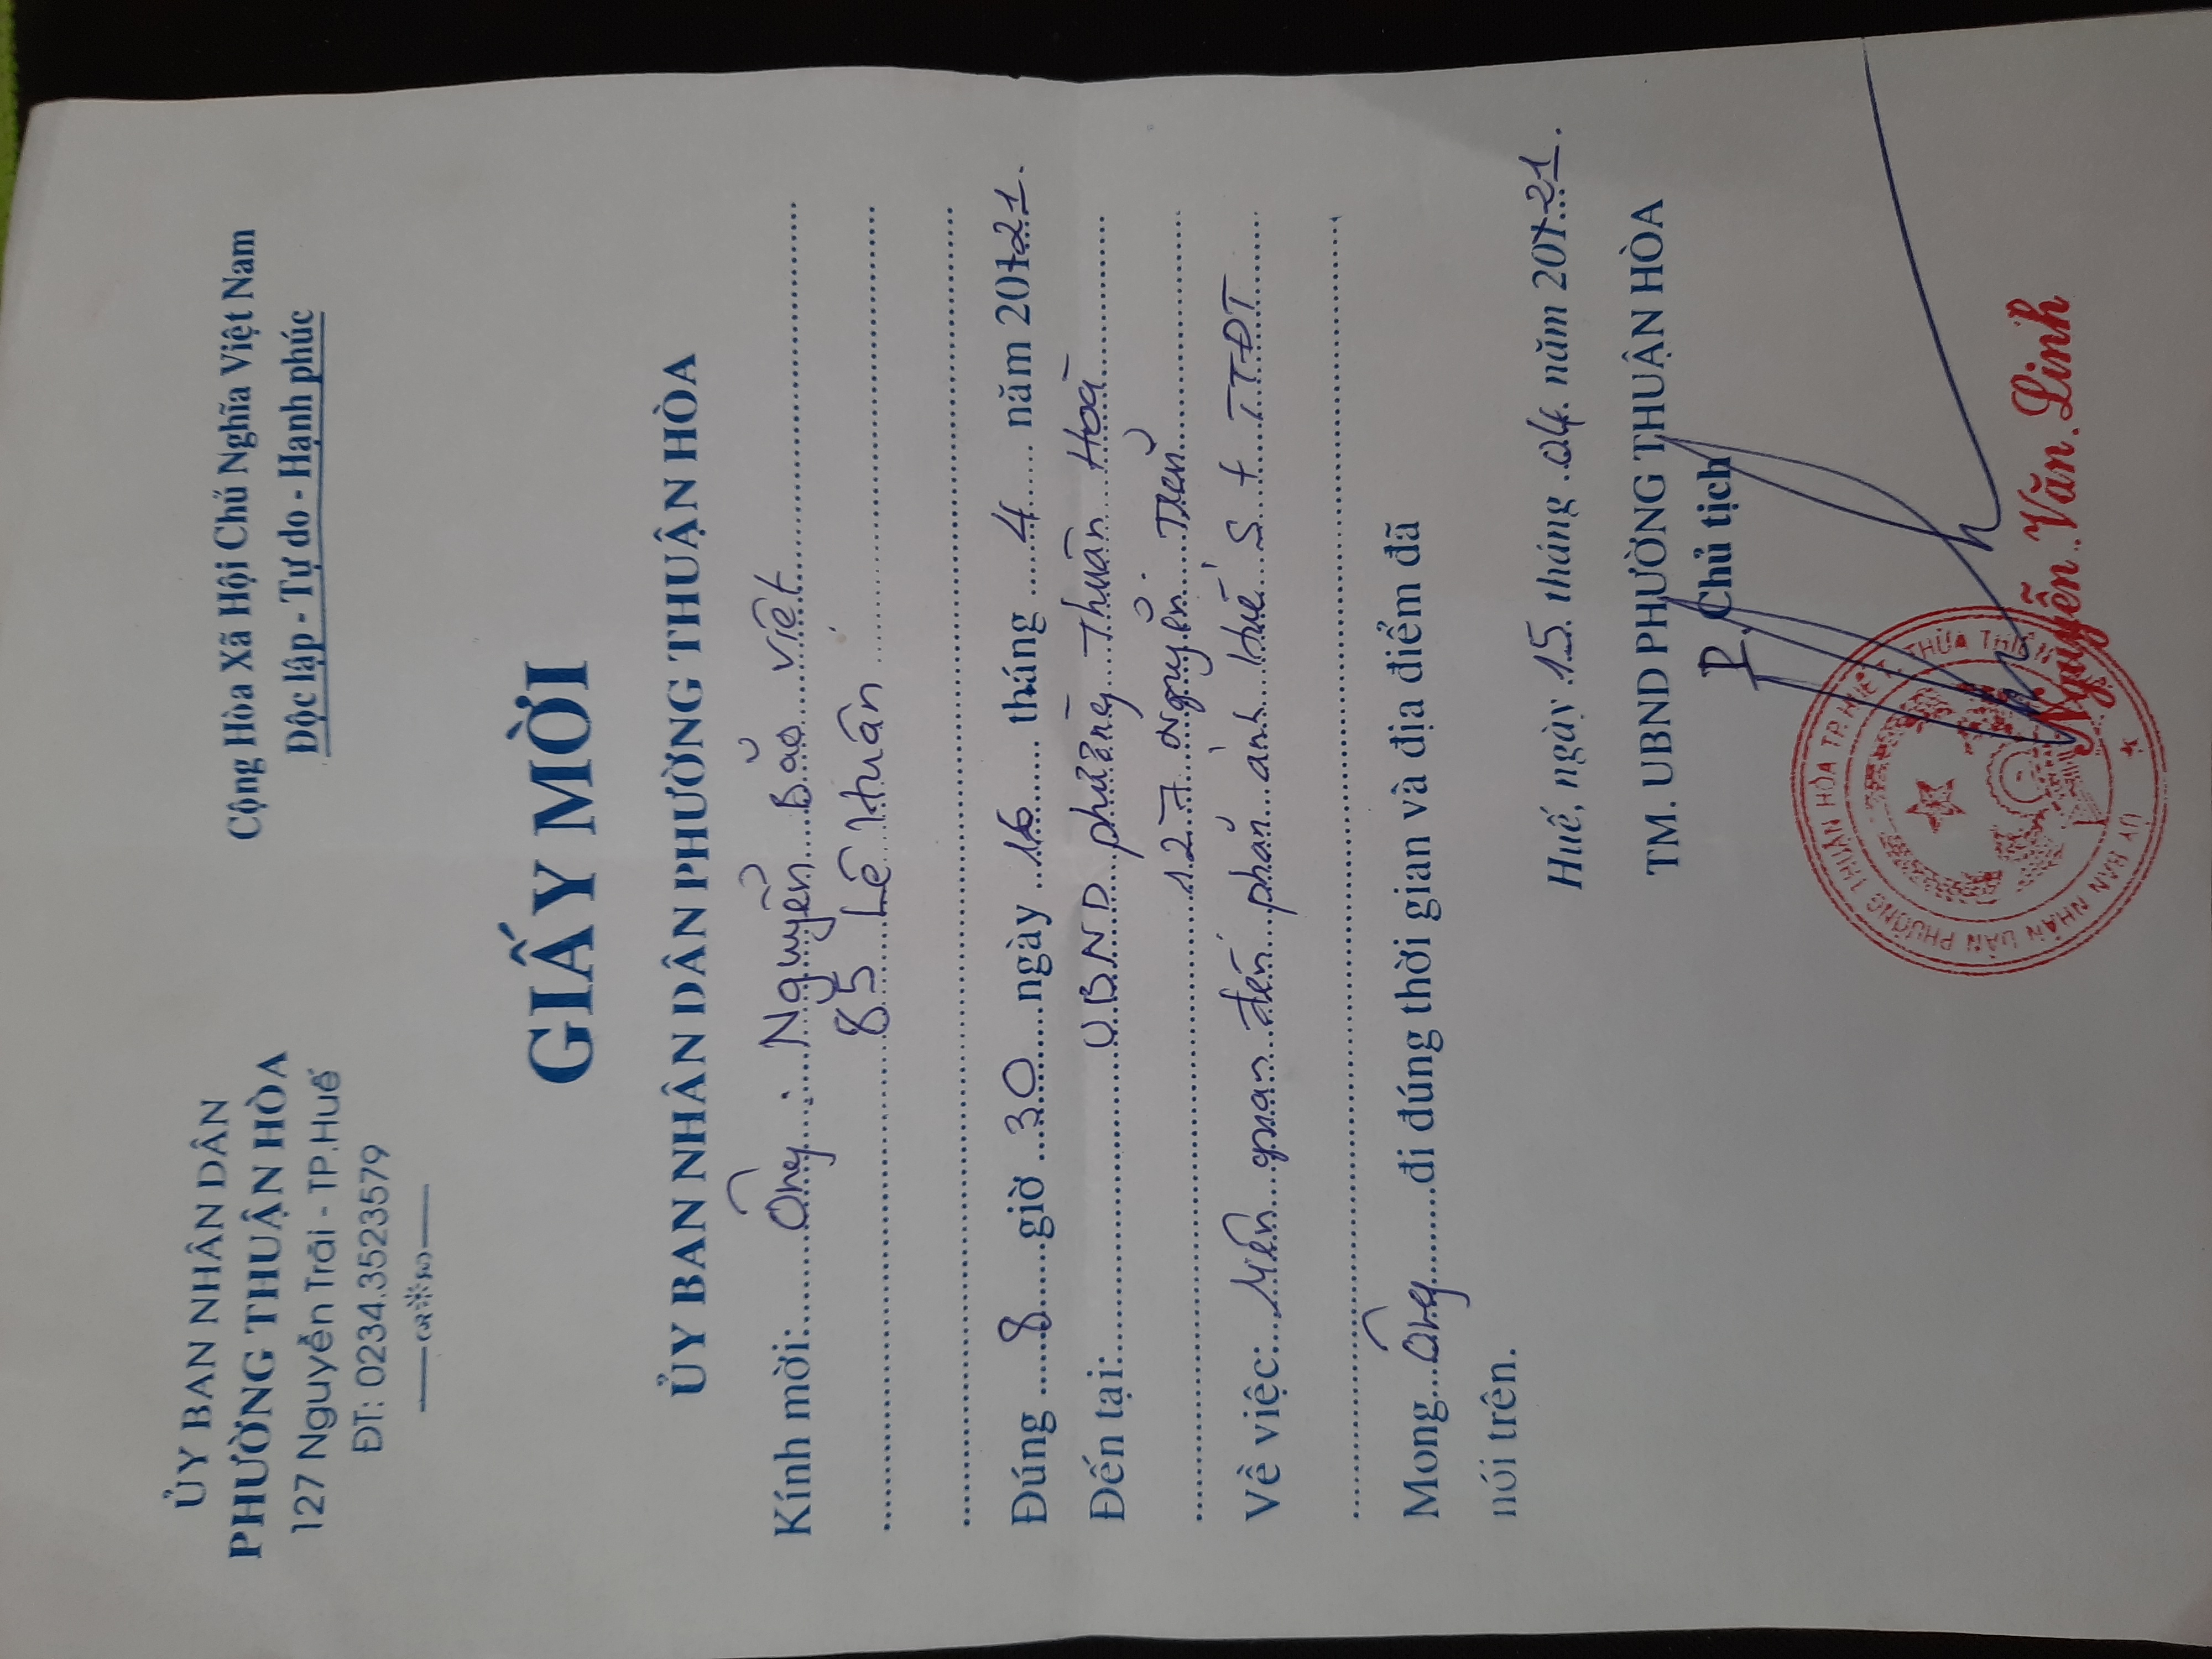 ỦY BAN NHÂN DÂN
PHƯỜNG THUẬN HÒA
127 Nguyễn Trãi - TP.Huế
ĐT: 0234.3523579
Cộng Hòa Xã Hội Chủ Nghĩa Việt Nam
Độc lập - Tự do - Hạnh phúc
GIẤY MỜI
ỦY BAN NHÂN DÂN PHƯỜNG THUẬN HÒA
Kính mời: Ông : Nguyễn Bảo Việt
85 Lê Huân
Đúng 8 giờ 30 ngày 16 tháng 4 năm 2021.
Đến tại: UBND phường Thuận Hoà
127 Nguyễn Trãi
Về việc: liên quan đến phản ánh Huế S + TTĐT
Mong Ông đi đúng thời gian và địa điểm đã
nói trên.
Huế, ngày 15 tháng 04 năm 2021.
TM. UBND PHƯỜNG THUẬN HÒA
P. Chủ tịch
ỦY BAN NHÂN DÂN PHƯỜNG THUẬN HÒA TP. HUẾ T. THỪA THIÊN
Nguyễn Văn Linh